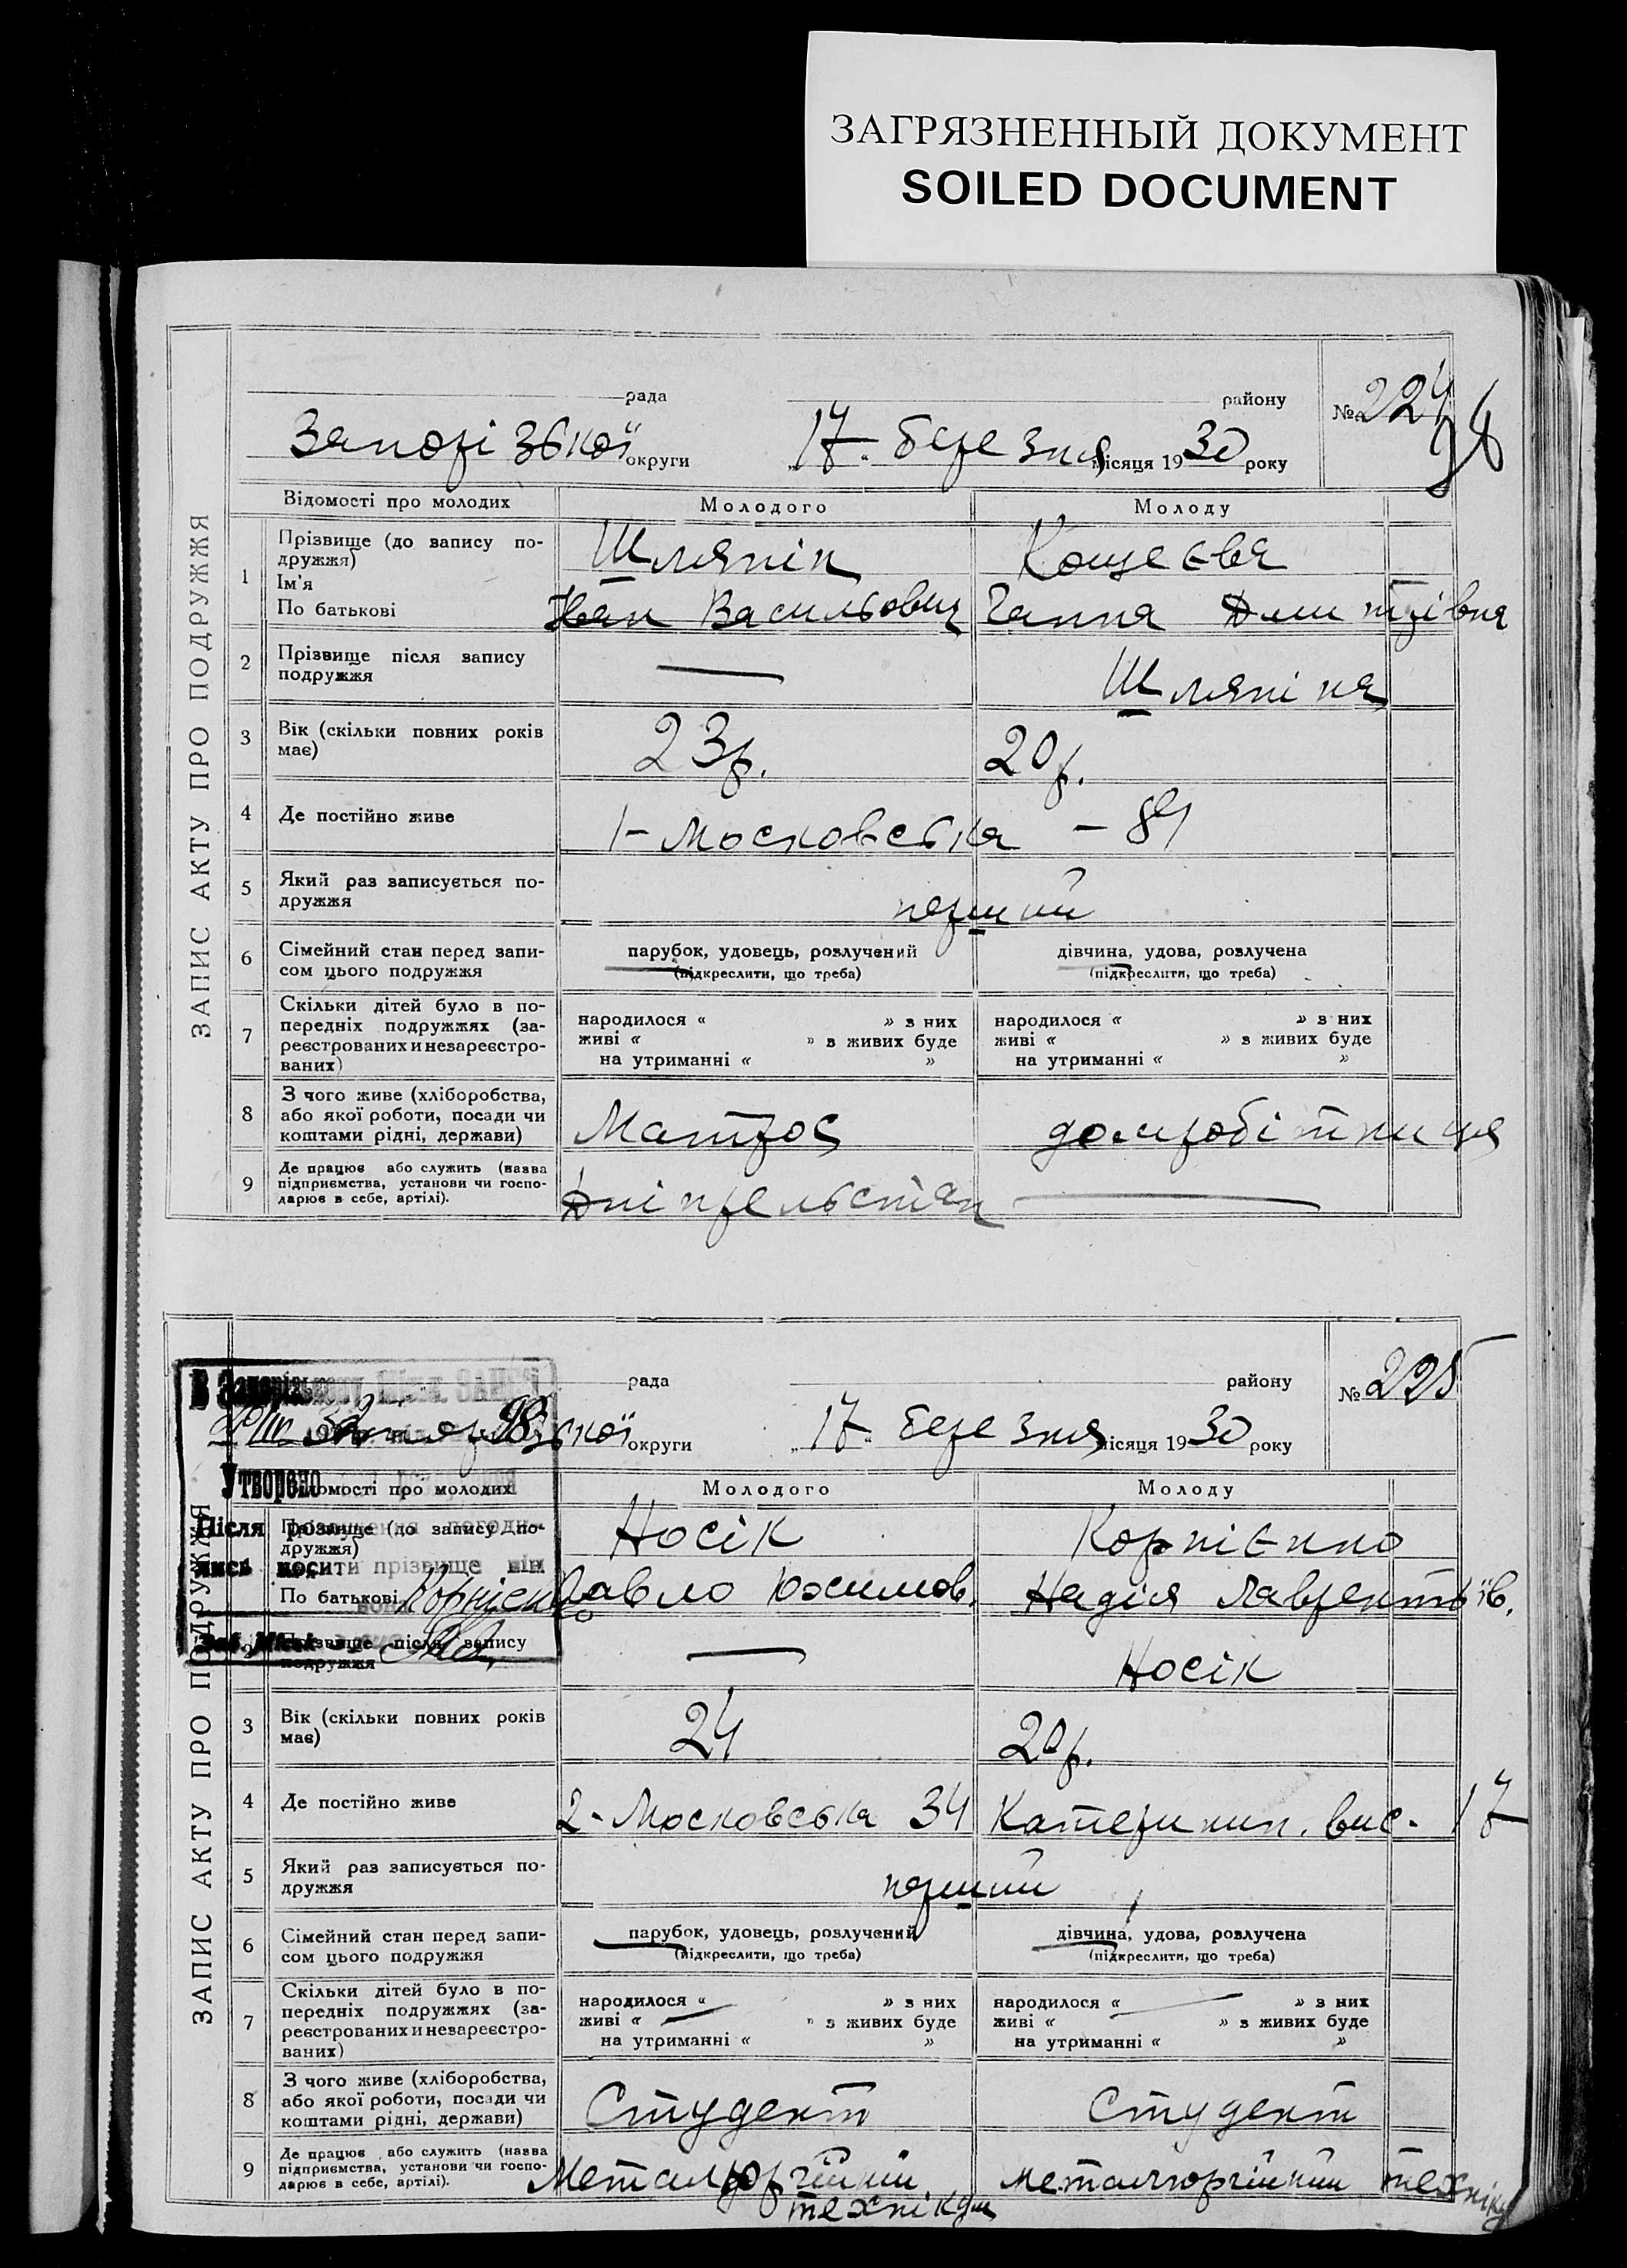 ЗАГРЯЗНЕННЫЙ ДОКУМЕНТ
SOILED DOCUMENT
ЗАПИС АКТУ ПРО ПОДРУЖЖЯ
рада району № 224
98
Запорізької округи „17“ березня місяця 1930 року
Відомості про молодих Молодого Молоду
1 Прізвище (до запису по-
дружжя) Шляпін Кощеєва
Ім'я
По батькові Іван Васильович Ганна Дмитрівна
2 Прізвище після запису
подружжя — Шляпіна
3 Вік (скільки повних років
має) 23 р. 20 р.
4 Де постійно живе 1-Московська - 89
5 Який раз записується по-
дружжя перший
6 Сімейний стан перед запи-
сом цього подружжя
парубок, удовець, розлучений
(підкреслити, що треба)
дівчина, удова, розлучена
(підкреслити, що треба)
7 Скільки дітей було в по-
передніх подружжях (за-
реєстрованих и незареєстро-
ваних)
народилося « » з них
живі « » з живих буде
на утриманні « »
народилося « » з них
живі « » з живих буде
на утриманні « »
8 З чого живе (хліборобства,
або якої роботи, посади чи
коштами рідні, держави) Матрос домробітниця
9 Де працює або служить (назва
підприємства, установи чи госпо-
дарює в себе, артілі). Дніпрельстан —
ЗАПИС АКТУ ПРО ПОДРУЖЖЯ
рада району № 225
Запорізької округи „17“ березня місяця 1930 року
Утворено
Після розлучення погоди-
лись носити прізвище він
вона Корнієнко
Відомості про молодих Молодого Молоду
Прізвище (до запису по-
дружжя) Носік Корнієнко
По батькові Павло Юхимов. Надія Лаврентьїв.
2 Прізвище після запису
подружжя — Носік
3 Вік (скільки повних років
має) 24 20 р.
4 Де постійно живе 2-Московська 34 Катеринин. вис. 17
5 Який раз записується по-
дружжя перший
6 Сімейний стан перед запи-
сом цього подружжя
парубок, удовець, розлучений
(підкреслити, що треба)
дівчина, удова, розлучена
(підкреслити, що треба)
7 Скільки дітей було в по-
передніх подружжях (за-
реєстрованих и незареєстро-
ваних)
народилося « » з них
живі « — » з живих буде
на утриманні « »
народилося « — » з них
живі « » з живих буде
на утриманні « »
8 З чого живе (хліборобства,
або якої роботи, посади чи
коштами рідні, держави) Студент Студент
9 Де працює або служить (назва
підприємства, установи чи госпо-
дарює в себе, артілі). Металюргійний металюргійний технікум
технікум